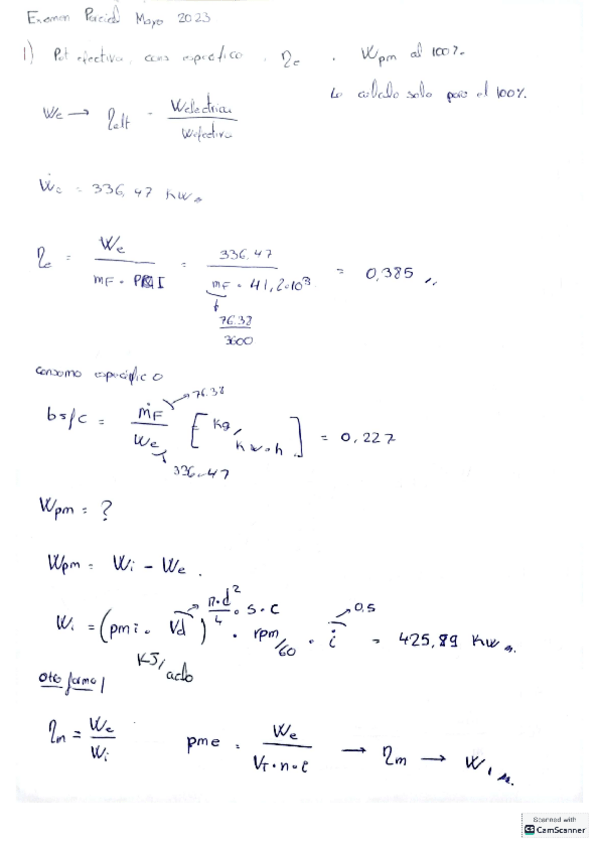 Examen Parcial Mayo 2023
1) Pot efectiva, cons especifico, ηe, Wpm al 100%.
Lo calculo solo para el 100%.
We → ηelt = Welectrica / Wefectiva
Ẇe = 336,47 Kw
ηe = We / (mF · PCI) = 336.47 / (mF · 41,2·10³) = 0,385
76.38 / 3600
Consumo especifico
bsfc = ṁF / We [kg / Kw·h] = 0,227
76.38
336.47
Wpm = ?
Wpm = Wi - We.
Wi = (pmi · Vd) · rpm/60 · i = 425,89 Kw
π·d²/4 · s · c
0,5
KJ/ciclo
Otra forma
ηm = We / Wi
pme = We / (VT · n · i) → ηm → Wi
Scanned with
CS CamScanner